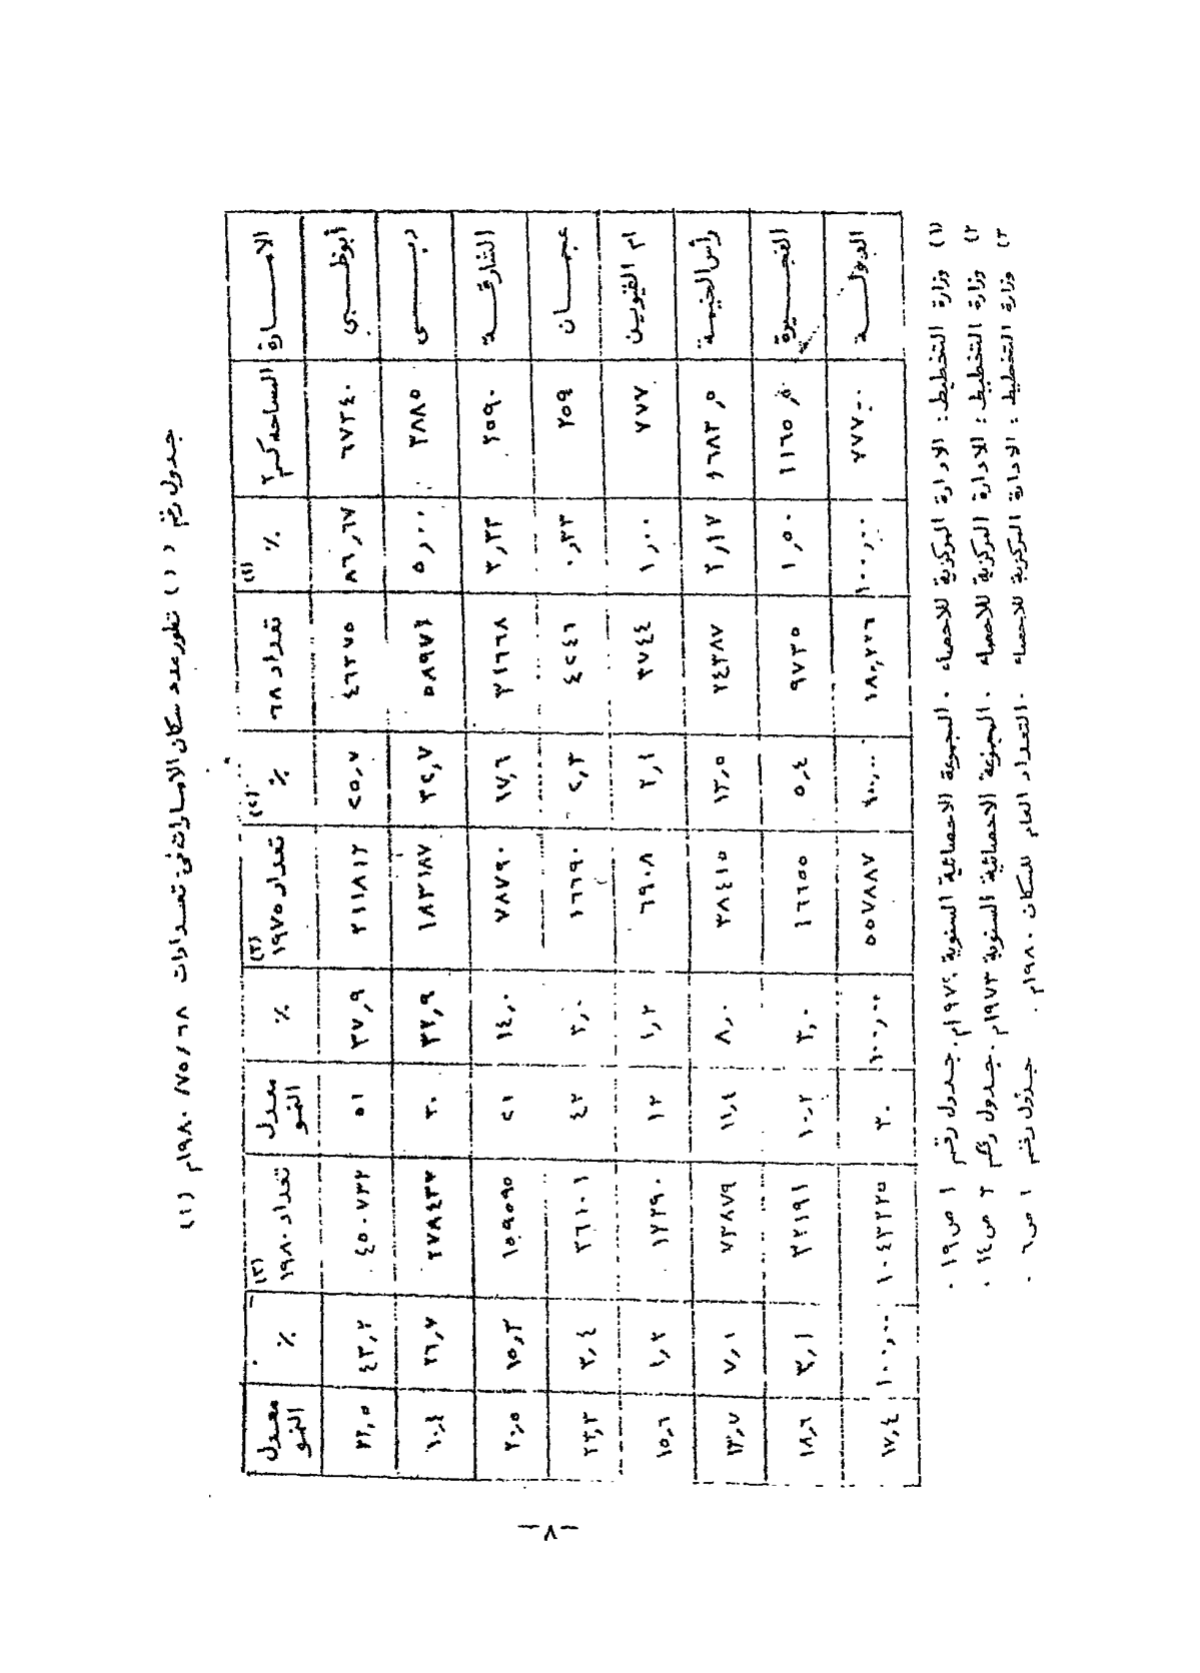 جدول رقم (١) تطور عدد سكان الامارات في تعدادات ٦٨/٧٥/١٩٨٠م (١)
الامـــارة المساحة كم٢ % (١) تعداد ٦٨ % (٢) تعداد ١٩٧٥ (٢) % معدل النمو تعداد ١٩٨٠ (٣) % معدل النمو
أبوظـــبي ٦٧٣٤٠ ٨٦,٦٧ ٤٦٣٧٥ ٢٥,٧ ٢١١٨١٢ ٣٧,٩ ٥١ ٤٥٠٧٣٢ ٤٣,٢ ٢٢,٥
دبـــى ٣٨٨٥ ٥,٠٠ ٥٨٩٧١ ٣٢,٧ ١٨٣١٨٧ ٣٢,٩ ٣٠ ٢٧٨٤٣٣ ٢٦,٧ ١٠,٤
الشارقـــة ٢٥٩٠ ٣,٣٣ ٣١٦٦٨ ١٧,٦ ٧٨٧٩٠ ١٤,٠ ٢١ ١٥٩٥٩٥ ١٥,٣ ٢٠,٥
عجـــمان ٢٥٩ ٠,٣٣ ٤٢٤٦ ٢,٣ ١٦٦٩٠ ٣,٠ ٤٢ ٣٦١٠١ ٣,٤ ٢٣,٣
ام القيوين ٧٧٧ ١,٠٠ ٣٧٤٤ ٢,١ ٦٩٠٨ ١,٢ ١٢ ١٢٢٩٠ ١,٢ ١٥,٦
رأس الخيمة ١٦٨٣,٥ ٢,١٧ ٢٤٣٨٧ ١٣,٥ ٣٨٤١٥ ٨,٠ ١١,٤ ٧٣٨٧٩ ٧,١ ١٣,٧
الفجـــيرة ١١٦٥,٥ ١,٥٠ ٩٧٣٥ ٥,٤ ١٦٦٥٥ ٣,٠ ١٠,٢ ٣٢١٩١ ٣,١ ١٨,٦
الدولـــة ٧٧٧٠٠ ١٠٠,٠٠ ١٨٠,٢٢٦ ١٠٠,٠٠ ٥٥٧٨٨٧ ١٠٠,٠٠ ٣٠ ١٠٤٣٢٢٥ ١٠٠,٠٠ ١٧,٤
(١) وزارة التخطيط : الادارة المركزية للاحصاء . المجموعة الاحصائية السنوية ١٩٧٤م . جدول رقم ١ ص١٩ .
(٢ وزارة التخطيط : الادارة المركزية للاحصاء . المجموعة الاحصائية السنوية ١٩٧٣م . جدول رقم ٢ ص١٤ .
(٣ وزارة التخطيط : الادارة المركزية للاحصاء . التعداد العام للسكان ١٩٨٠م . جدول رقم ١ ص٦ .
-٧-